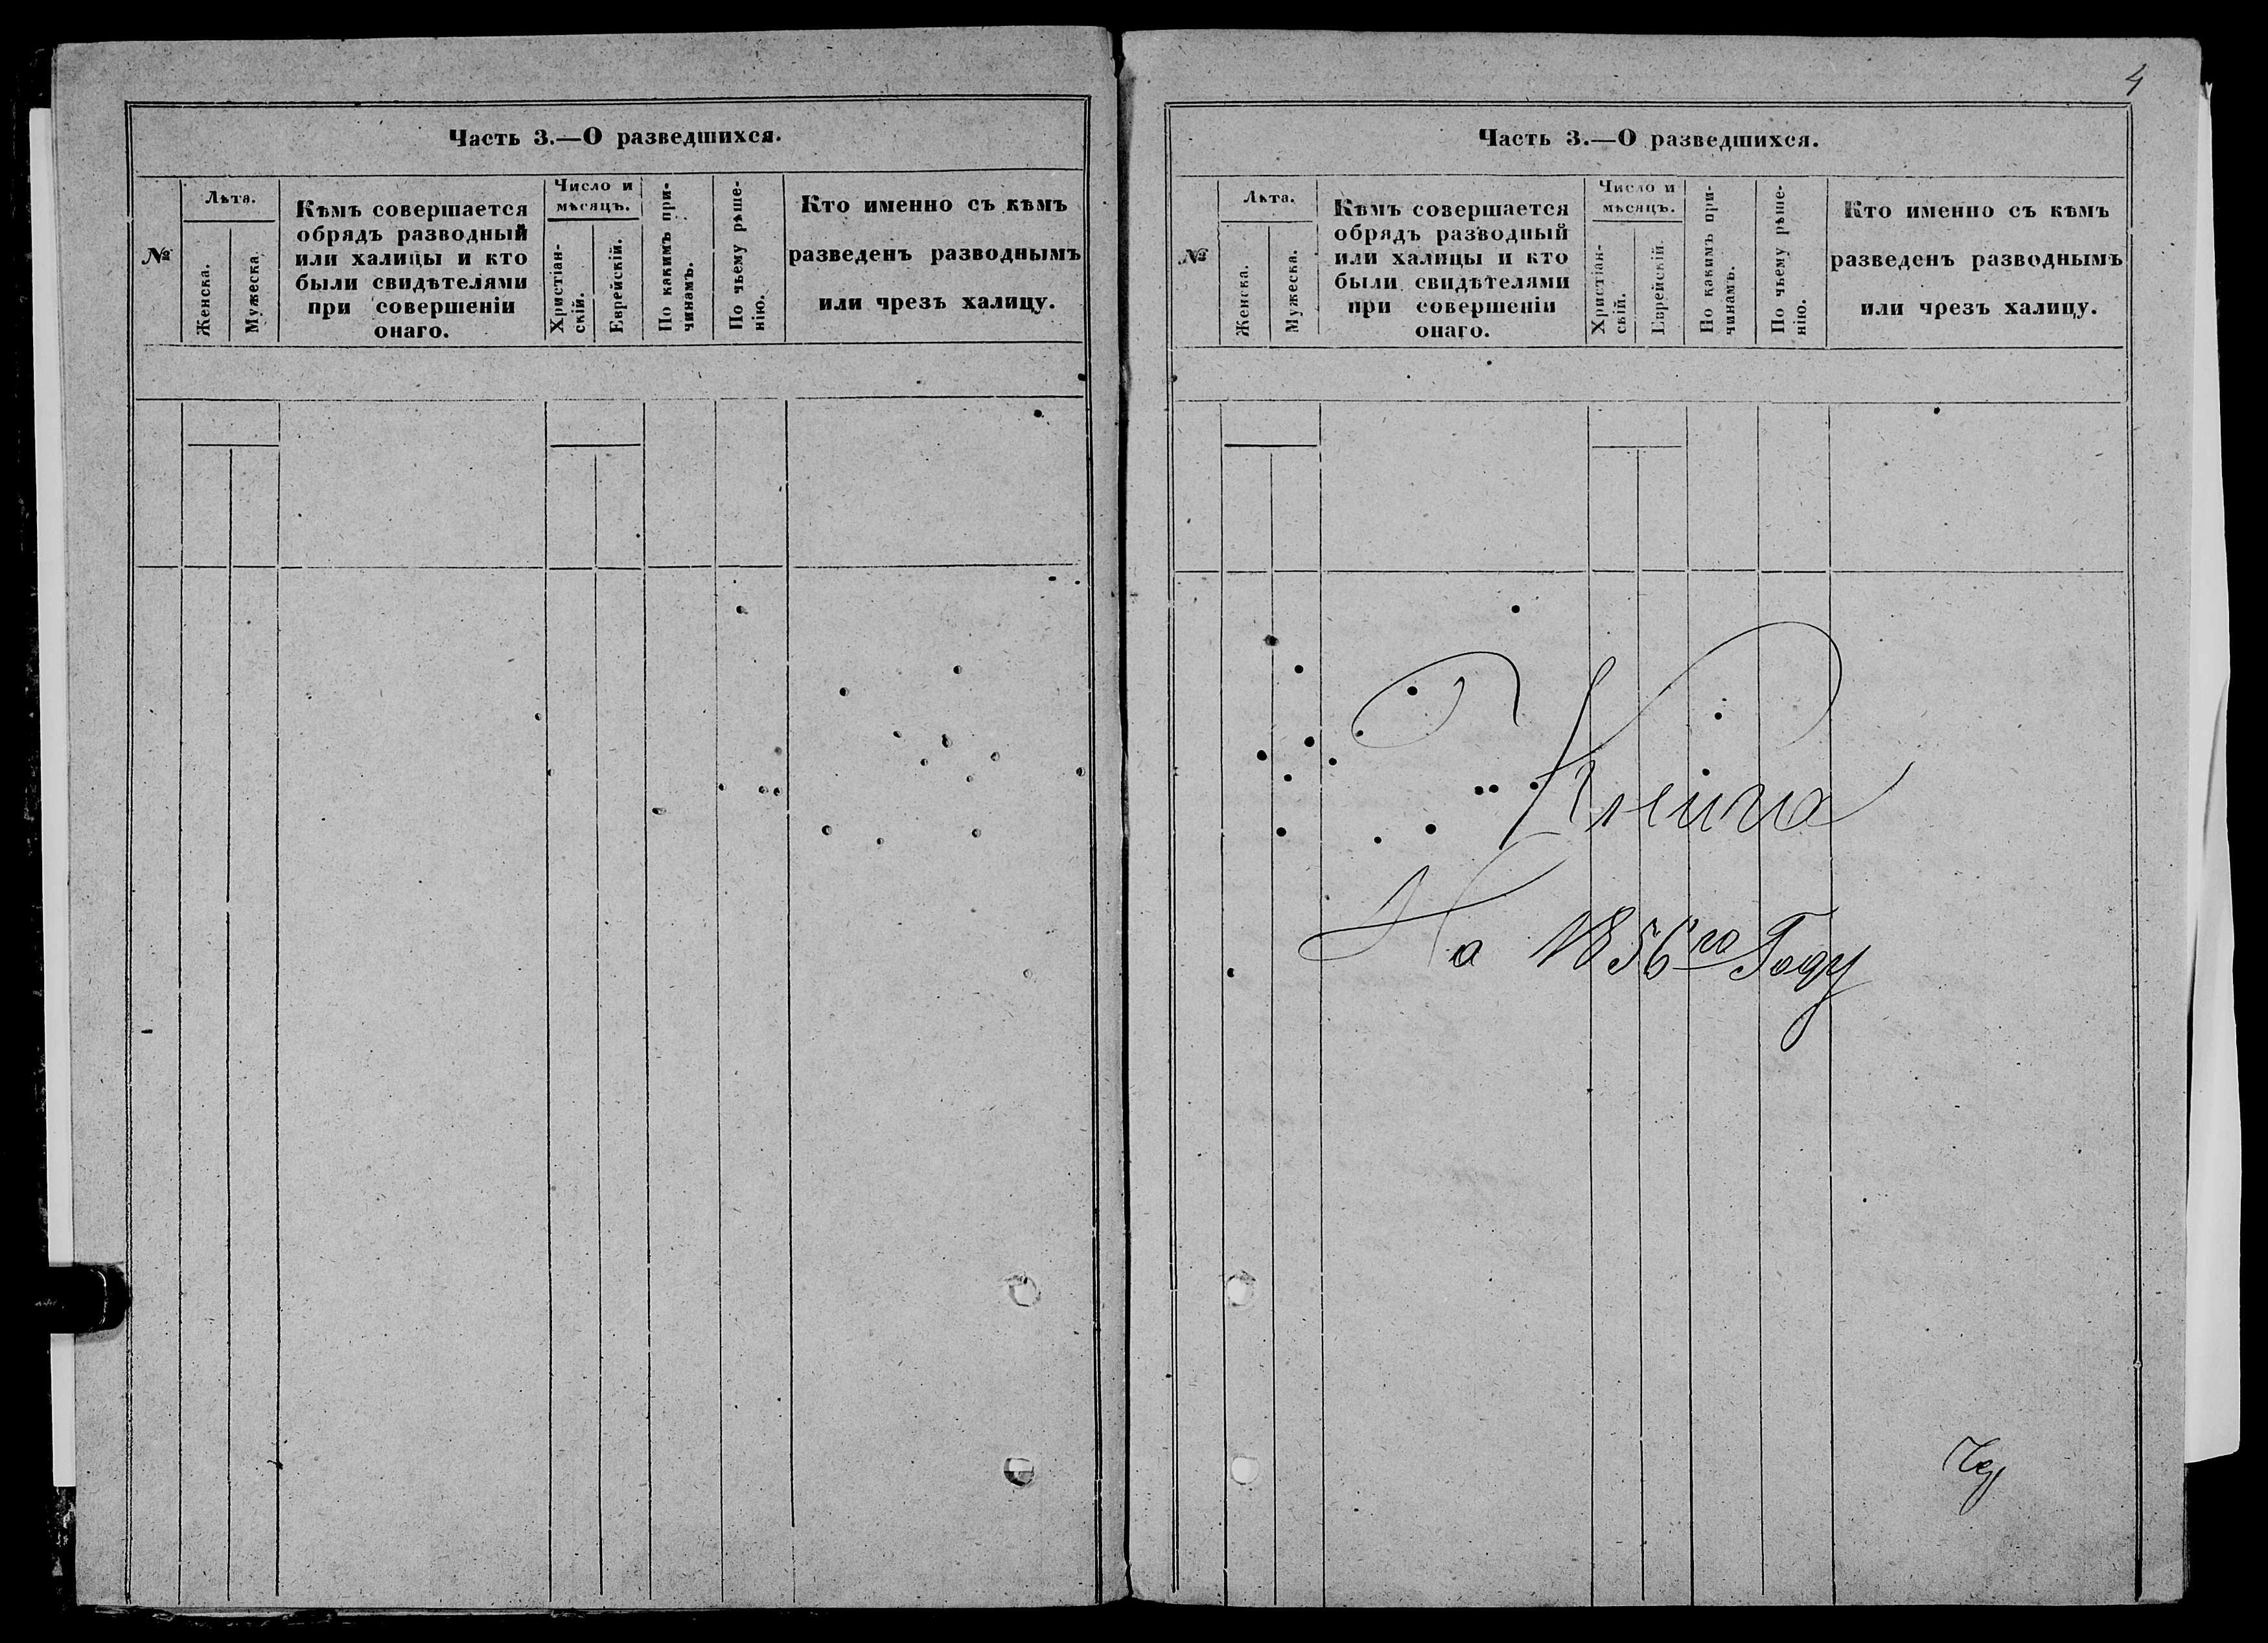 Часть 3.—О разведшихся.
№
Лѣта.
Женска.
Мужеска.
Кѣмъ совершается
обрядъ разводный
или халицы и кто
были свидѣтелями
при совершеніи
онаго.
Число и
мѣсяцъ.
Христіан-
скій.
Еврейскій.
По какимъ при-
чинамъ.
По чьему рѣше-
нію.
Кто именно съ кѣмъ
разведенъ разводнымъ
или чрезъ халицу.
4
Часть 3.—О разведшихся.
№
Лѣта.
Женска.
Мужеска.
Кѣмъ совершается
обрядъ разводный
или халицы и кто
были свидѣтелями
при совершеніи
онаго.
Число и
мѣсяцъ.
Христіан-
скій.
Еврейскій.
По какимъ при-
чинамъ.
По чьему рѣше-
нію.
Кто именно съ кѣмъ
разведенъ разводнымъ
или чрезъ халицу.
Книга
На 1856го Году